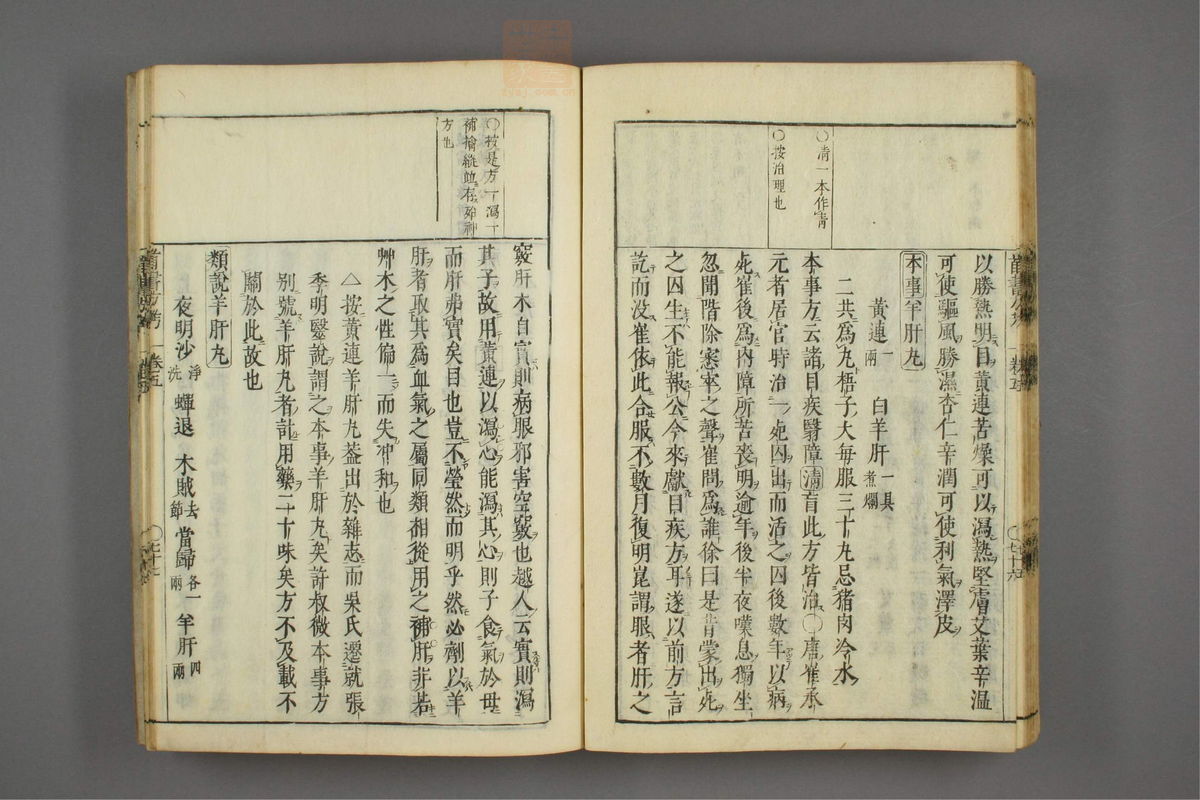 ○清一本作青
○按治理也
以勝熱明目黃連苦燥可以瀉熱堅膚艾葉辛溫
可使驅風勝濕杏仁辛潤可使利氣澤皮
本事羊肝丸
黃連一兩 白羊肝一具煮爛
二共爲丸梧子大每服三十丸忌猪肉冷水
本事方云諸目疾翳障清盲此方皆治○唐崔承
元者居官時治一死囚出而活之囚後數年以病
死崔後爲內障所苦喪明逾年後半夜嘆息獨坐
忽聞階除窸窣之聲崔問爲誰徐曰是昔蒙出死
之囚生不能報公今來獻目疾方耳遂以前方言
訖而没崔依此合服不數月復明崑謂眼者肝之
○按是方一瀉一
補擒縱並在殆神
方也
竅肝木自實則病服邪害空竅也越人云實則瀉
其子故用黃連以瀉心能瀉其心則子食氣於母
而肝弗實矣目也豈不瑩然而明乎然必劑以羊
肝者取其爲血氣之屬同類相從用之補肝非若
艸木之性偏一而失冲和也
△按黃連羊肝丸葢出於雜志而吳氏遷就張
季明醫說謂之本事羊肝丸矣許叔微本事方
別號羊肝丸者計用藥二十味矣方不及載不
關於此故也
類說羊肝丸
夜明沙淨洗 蟬退 木賊去節 當歸各一兩 羊肝四兩
卷五
○七十七
○七十六